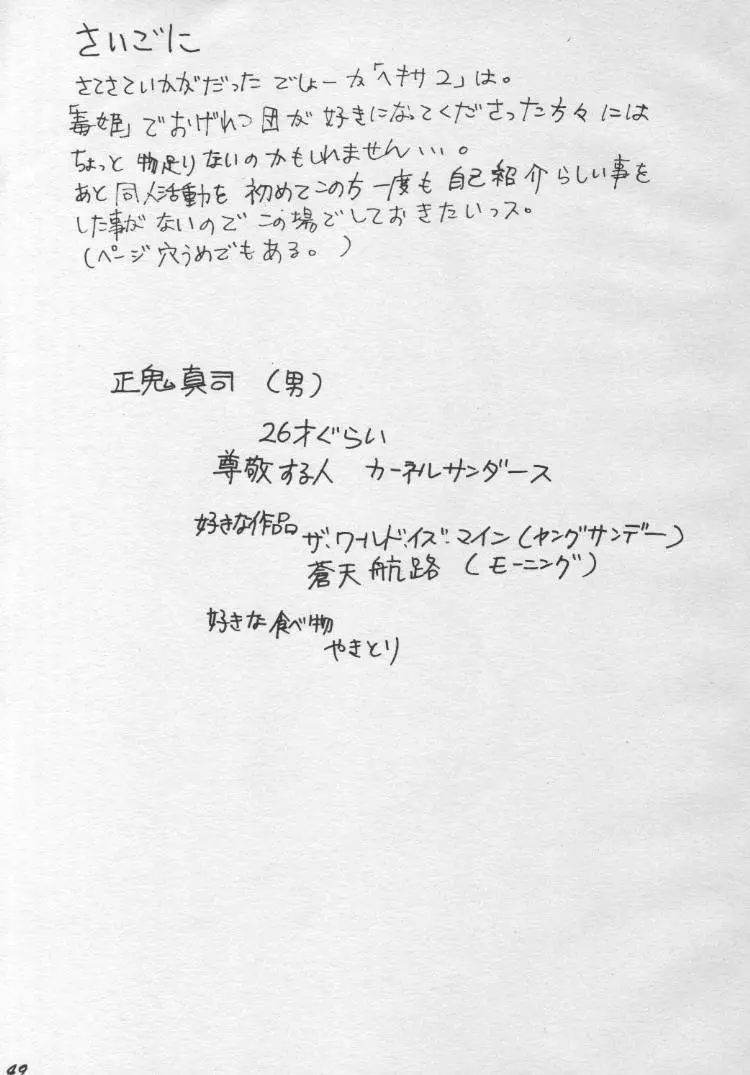 さいごに
さてさていかがだった でしょーか「ヘキサ2」は。
「毒姫」でおげれつ団が 好きになってくださった方々には
ちょっと 物足りないのかもしれません…。
あと同人活動を 初めてこの方 一度も 自己紹介らしい事を
した事が ないので この場でしておきたいっス。
(ページ穴うめでもある。)
正鬼真司 (男)
26才ぐらい
尊敬する人 カーネルサンダース
好きな作品 ザ・ワールド・イズ・マイン(ヤングサンデー)
蒼天航路 (モーニング)
好きな食べ物
やきとり
49